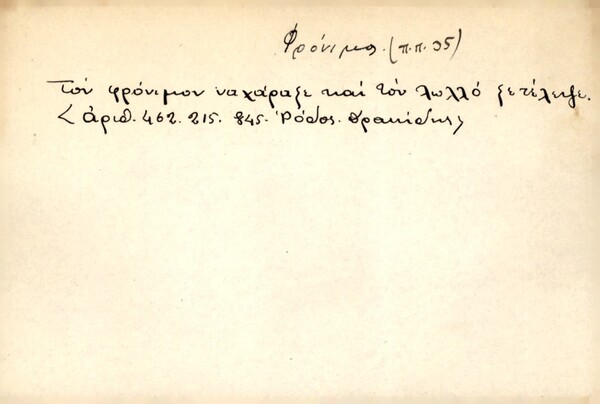 Φρόνιμος (π.π. 35)
Τόν φρόνιμον να χάραξε καί τόν λωλλό ξετέλειψε.
< ἀριθ. 462. 215. 845. Ῥόδος. Δρακίδης >